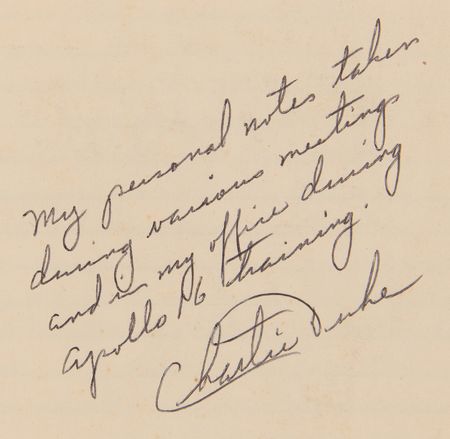 My personal notes taken
during various meetings
and in my office during
Apollo 16 training.
Charlie Duke